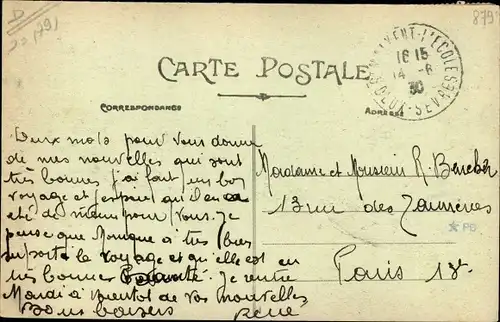 D
8791
CARTE POSTALE
CORRESPONDANCE
ADRESSE
ST MAIXENT-L'ECOLE
16 15
14 -6
30
DEUX-SEVRES
Deux mots pour vous donner
de mes nouvelles qui sont
très bonnes j'ai fait un bon
voyage et j'espère qu'il en a
été de même pour vous. Je
pense que Monique a très bien
supporté le voyage et qu'elle est en
très bonne santé. Je rentre
Mardi à bientôt de vos nouvelles
Bons baisers René
Madame et Monsieur R.
13 rue des
Paris 13e
PB